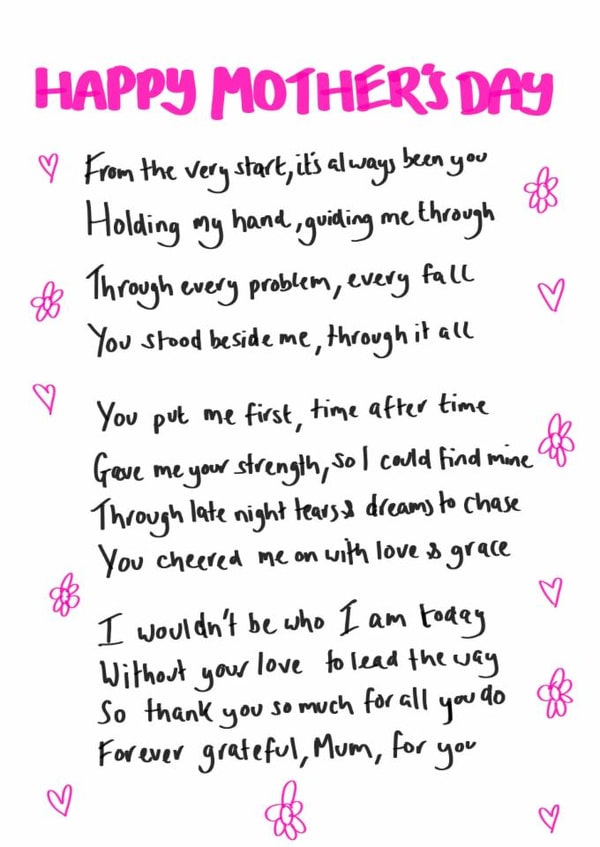 HAPPY MOTHER'S DAY
From the very start, it's always been you
Holding my hand, guiding me through
Through every problem, every fall
You stood beside me, through it all
You put me first, time after time
Gave me your strength, so I could find mine
Through late night tears & dreams to chase
You cheered me on with love & grace
I wouldn't be who I am today
Without your love to lead the way
So thank you so much for all you do
Forever grateful, Mum, for you